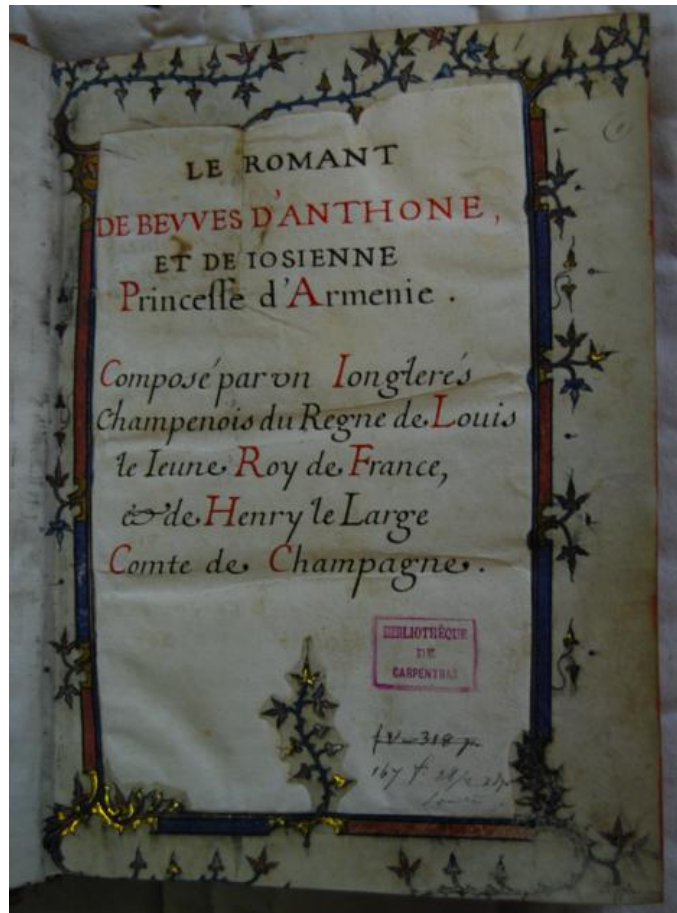 LE ROMANT
DE BEVVES D'ANTHONE,
ET DE IOSIENNE
Princesse d'Armenie.
Composé par vn Ionglerés
Champenois du Regne de Louis
le Ieune Roy de France,
& de Henry le Large
Comte de Champagne.
BIBLIOTHÈQUE
DE
CARPENTRAS
167 f